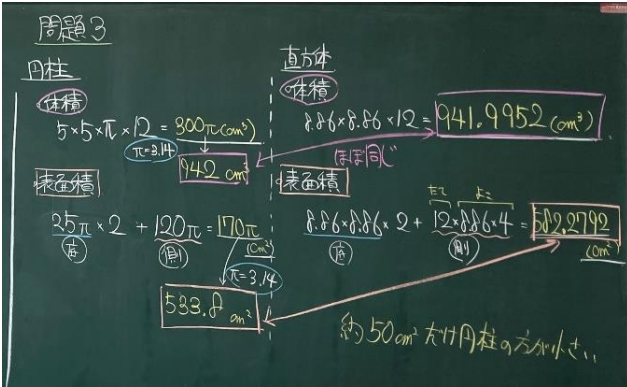 問題3
円柱
体積
5×5×π×12=300π(cm³)
π=3.14
942cm³
表面積
25π×2+120π=170π
(cm²)
底
側
π=3.14
533.8cm²
直方体
体積
8.86×8.86×12=941.9952(cm³)
ほぼ同じ
表面積
たて よこ
8.86×8.86×2+12×8.86×4=582.2792
(cm²)
底
側
約50cm²だけ円柱の方が小さい